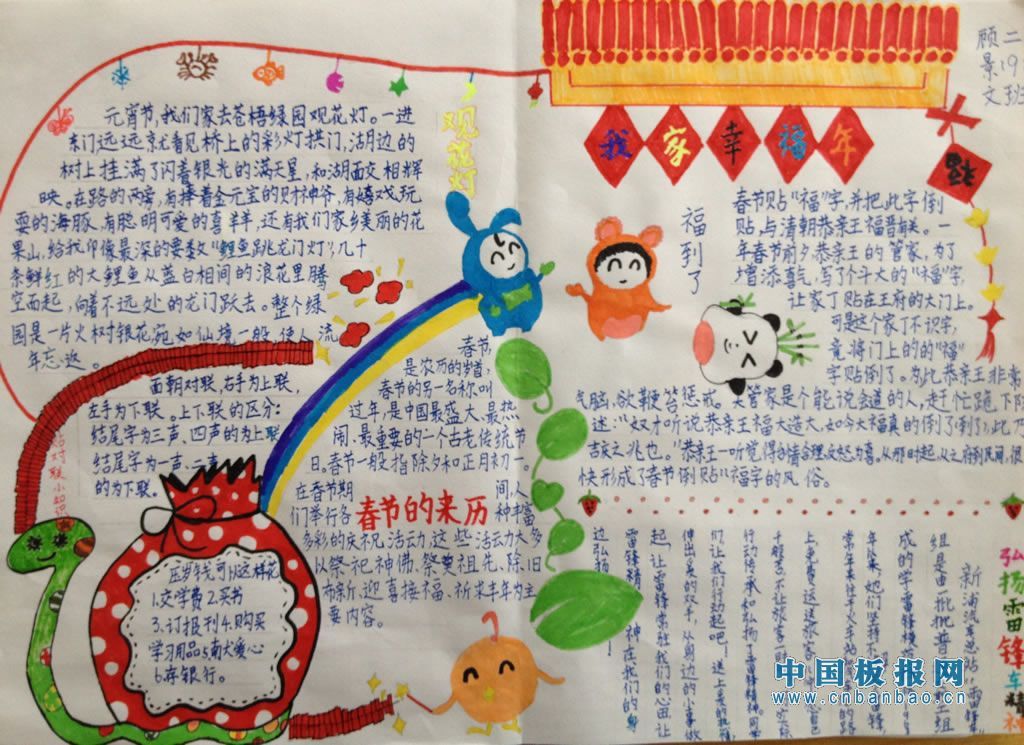 我家幸福年
顾
景
文
二
19
班
观花灯
元宵节,我们家去苍梧绿园观花灯。一进
东门远远就看见桥上的彩灯拱门,湖边的
树上挂满了闪着银光的满天星,和湖面交相辉
映。在路的两旁,有捧着金元宝的财神爷,有嬉戏玩
耍的海豚,有聪明可爱的喜羊羊,还有我们家乡美丽的花
果山,给我印像最深的要数“鲤鱼跳龙门灯”,几十
条鲜红的大鲤鱼从蓝白相间的浪花里腾
空而起,向着不远处的龙门跃去。整个绿
园是一片火树银花,宛如仙境一般,使人流
年忘返。
福
福到了
春节贴“福”字,并把此字倒
贴,与清朝恭亲王福晋有关。一
年春节前夕恭亲王的管家,为了
增添喜气,写了个斗大的“福”字,
让家丁贴在王府的大门上。
可是这个家丁不识字,
竟将门上的的“福”
字贴倒了。为此恭亲王非常
气脑,欲鞭笞惩戒。
管家是个能说会道的人,赶忙跪下陈
述:“奴才听说恭亲王福大造大,如今大福真的倒了(到了),此乃
吉庆之兆也。”恭亲王一听觉得
快形成了春节倒贴“福”字的风俗。
贴对联小知识
面朝对联,右手为上联,
左手为下联。上下联的区分:
结尾字为三声、四声的为上联
结尾字为一声、二声
的为下联。
春节的来历
春节,
是农历的岁首,
春节的另一名称叫
过年,是中国最盛大、最热
闹、最重要的一个古老传统节
日。春节一般指除夕和正月初一。
在春节期间,人
们举行各种丰富
多彩的庆祝活动,这些活动大多
以祭祀神佛、祭奠祖先、除旧
布新、迎喜接福、祈求丰年为主
要内容。
压岁钱可以这样花
1.交学费 2.买书
3.订报刊 4.购买
学习用品 5.南大爱心
6.存银行。
弘扬雷锋车精神
新浦汽车总站“雷锋
组是由一批批普
成的学雷锋模
年以来,她们坚持
常年来往于火车站
上,免费运送旅客
行动传承和弘扬了雷锋精神。同学
们,让我们行动起吧!送上美的祝福
伸出美的双手,从身边的小事做
起,让雷锋常驻我们的心田,让
雷锋精神在我们的身
边弘扬!
中国板报网
www.cnbanbao.cn